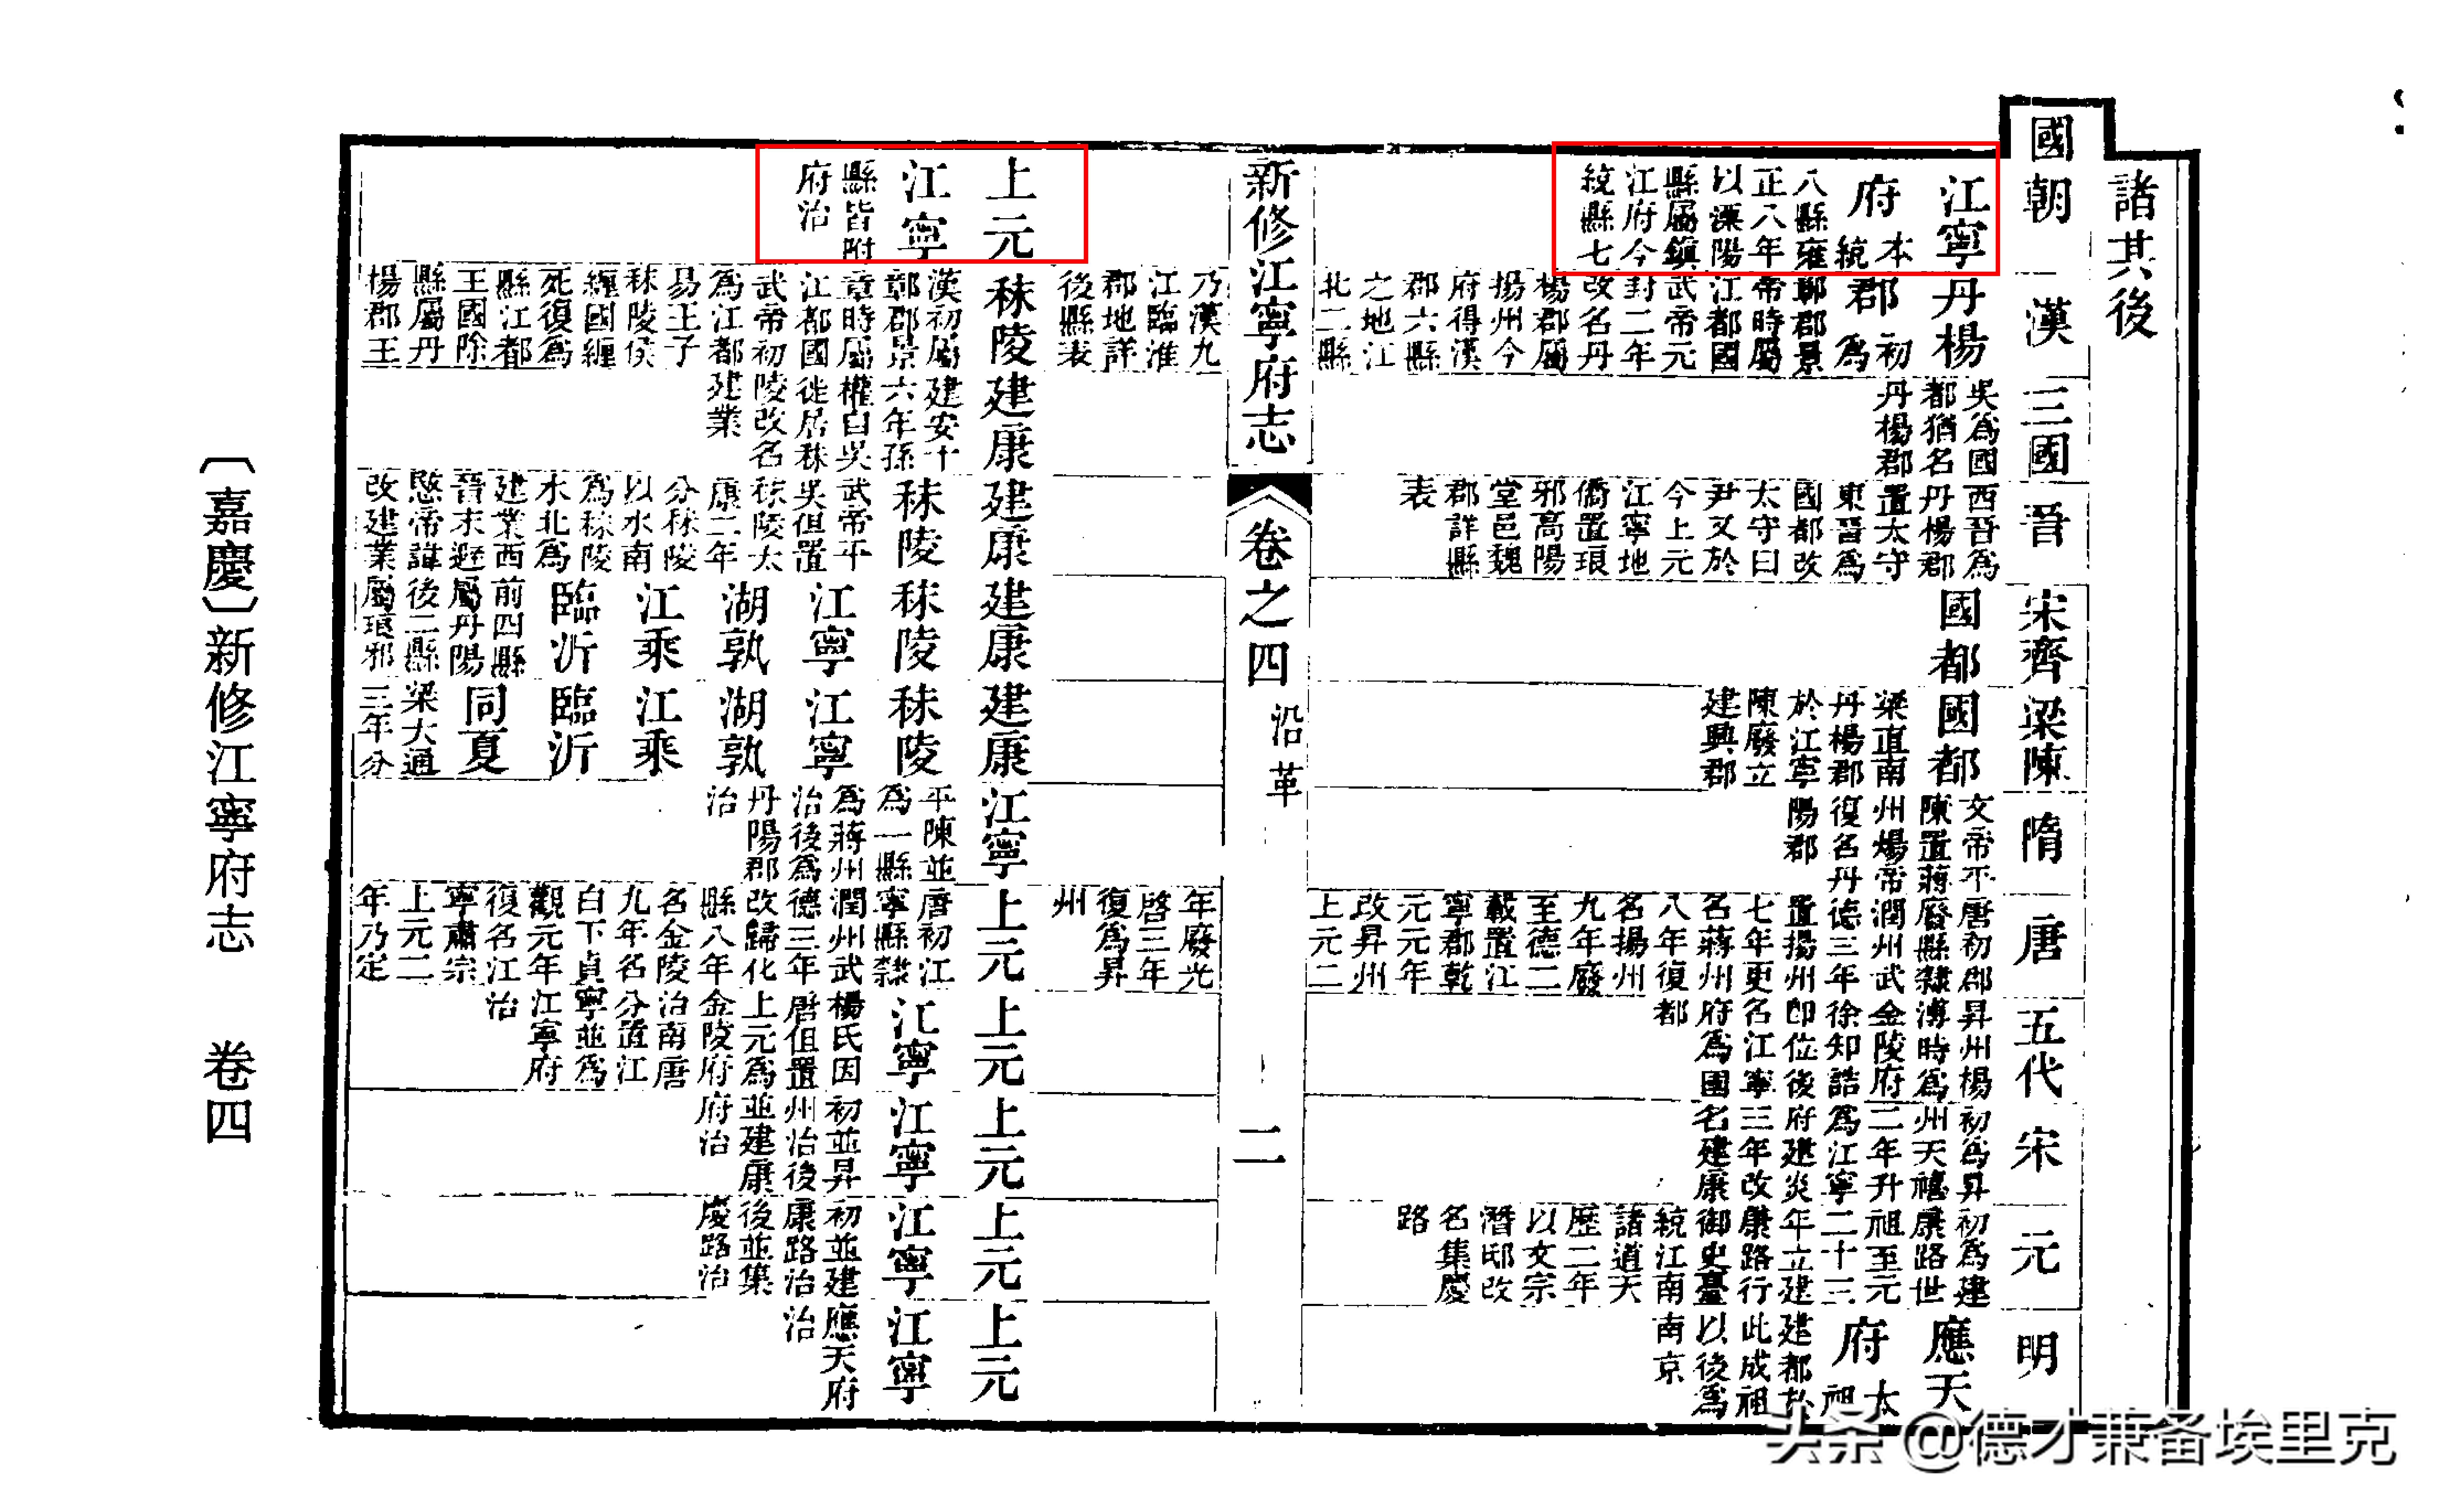 諸其後
國朝
江寧
府 本統
八縣雍
正八年
以溧陽
縣屬鎮
江府今
統縣七
漢
丹楊
郡 初為
鄣郡景
帝時屬
江都國
武帝元
封二年
改名丹
楊郡屬
揚州今
府得漢
郡六縣
之地江
北二縣
三國
吳為國
都猶名
丹楊郡
晉
西晉為
丹楊郡
置太守
東晉為
國都改
太守曰
尹又於
今上元
江寧地
僑置琅
邪高陽
堂邑魏
郡詳縣
表
宋齊
國都
梁陳
國都
梁直南
丹楊郡
於江寧
陳廢立
建興郡
隋
文帝平
陳置蔣
州煬帝
復名丹
陽郡
唐
唐初郡
廢縣隸
潤州武
德三年
置揚州
七年更
名蔣州
八年復
名揚州
九年廢
至德二
載置江
寧郡乾
元元年
改昇州
上元二
五代
昇州楊
溥時為
金陵府
徐知誥
即位後
名江寧
府為國
都
宋
初為昇
州天禧
二年升
為江寧
府建炎
三年改
名建康
元
初為建
康路世
祖至元
二十三
年立建
康路行
御史臺
統江南
諸道天
歷二年
以文宗
潛邸改
名集慶
路
明
應天
府 太祖
建都於
此成祖
以後為
南京
新修江寧府志
卷之四 沿革
二
乃漢九
江臨淮
郡地詳
後縣表
年廢光
啓三年
復為昇
州
上元
江寧
縣皆附
府治
秣陵
漢初屬
鄣郡景
章時屬
江都國
武帝初
為江都
易王子
秣陵侯
纏國纏
死復為
縣江都
王國除
縣屬丹
楊郡王
建康
建安十
六年孫
權自吳
徙居秣
陵改名
建業
建康
秣陵
武帝平
吳但置
秣陵太
康二年
分秣陵
以水南
為秣陵
水北為
建業西
晉末避
愍帝諱
改建業
建康
秣陵
江寧
湖孰
江乘
臨沂
前四縣
屬丹陽
後二縣
屬琅邪
建康
秣陵
江寧
湖孰
江乘
臨沂
同夏
梁大通
三年分
江寧
平陳並
為一縣
為蔣州
治後為
丹陽郡
治
上元
唐初江
寧縣隸
潤州武
德三年
改歸化
縣八年
名金陵
九年名
白下貞
觀元年
復名江
寧肅宗
上元二
年乃定
上元
江寧
楊氏因
唐但置
上元為
金陵府
治南唐
分置江
寧並為
江寧府
治
上元
江寧
初並昇
州治後
並建康
府治
上元
江寧
初並建
康路治
後並集
慶路治
上元
江寧
應天府
治
〔嘉慶〕新修江寧府志 卷四
头条 @德才兼备埃里克